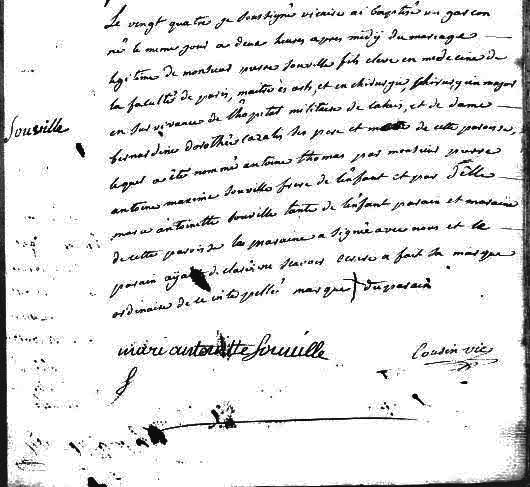 Le vingt quatre je soussigné vicaire ai baptisé un garcon
né le meme jour a deux heures apres midy du mariage
legitime de monsieur pierre Souville fils eleve en medecine de
la faculté de paris, maitre es arts, et en chirurgie, chirurgien major
en survivance de l'hopital militaire de calais, et de dame
bernardine dorothée cazalis ses pere et mere de cette paroisse,
lequel a été nommé antoine thomas par monsieur pierre
antoine maxime Souville frere de l'enfant et par delle
marie antoinette Souville tante de l'enfant parain et maraine
Souville
de cette paroisse la maraine a signé avec nous et le
parain ayant declaré ne scavoir ecrire a fait sa marque
ordinaire de ce interpellé marque du parain
marie antoinette Souville
Cousin vic